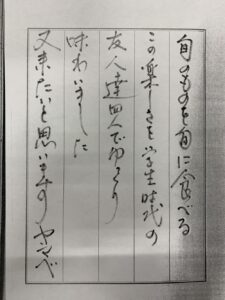 旬のものを旬に食べる
この楽しさを学生時代の
友人達四人でゆっくり
味わいました
又来たいと思います